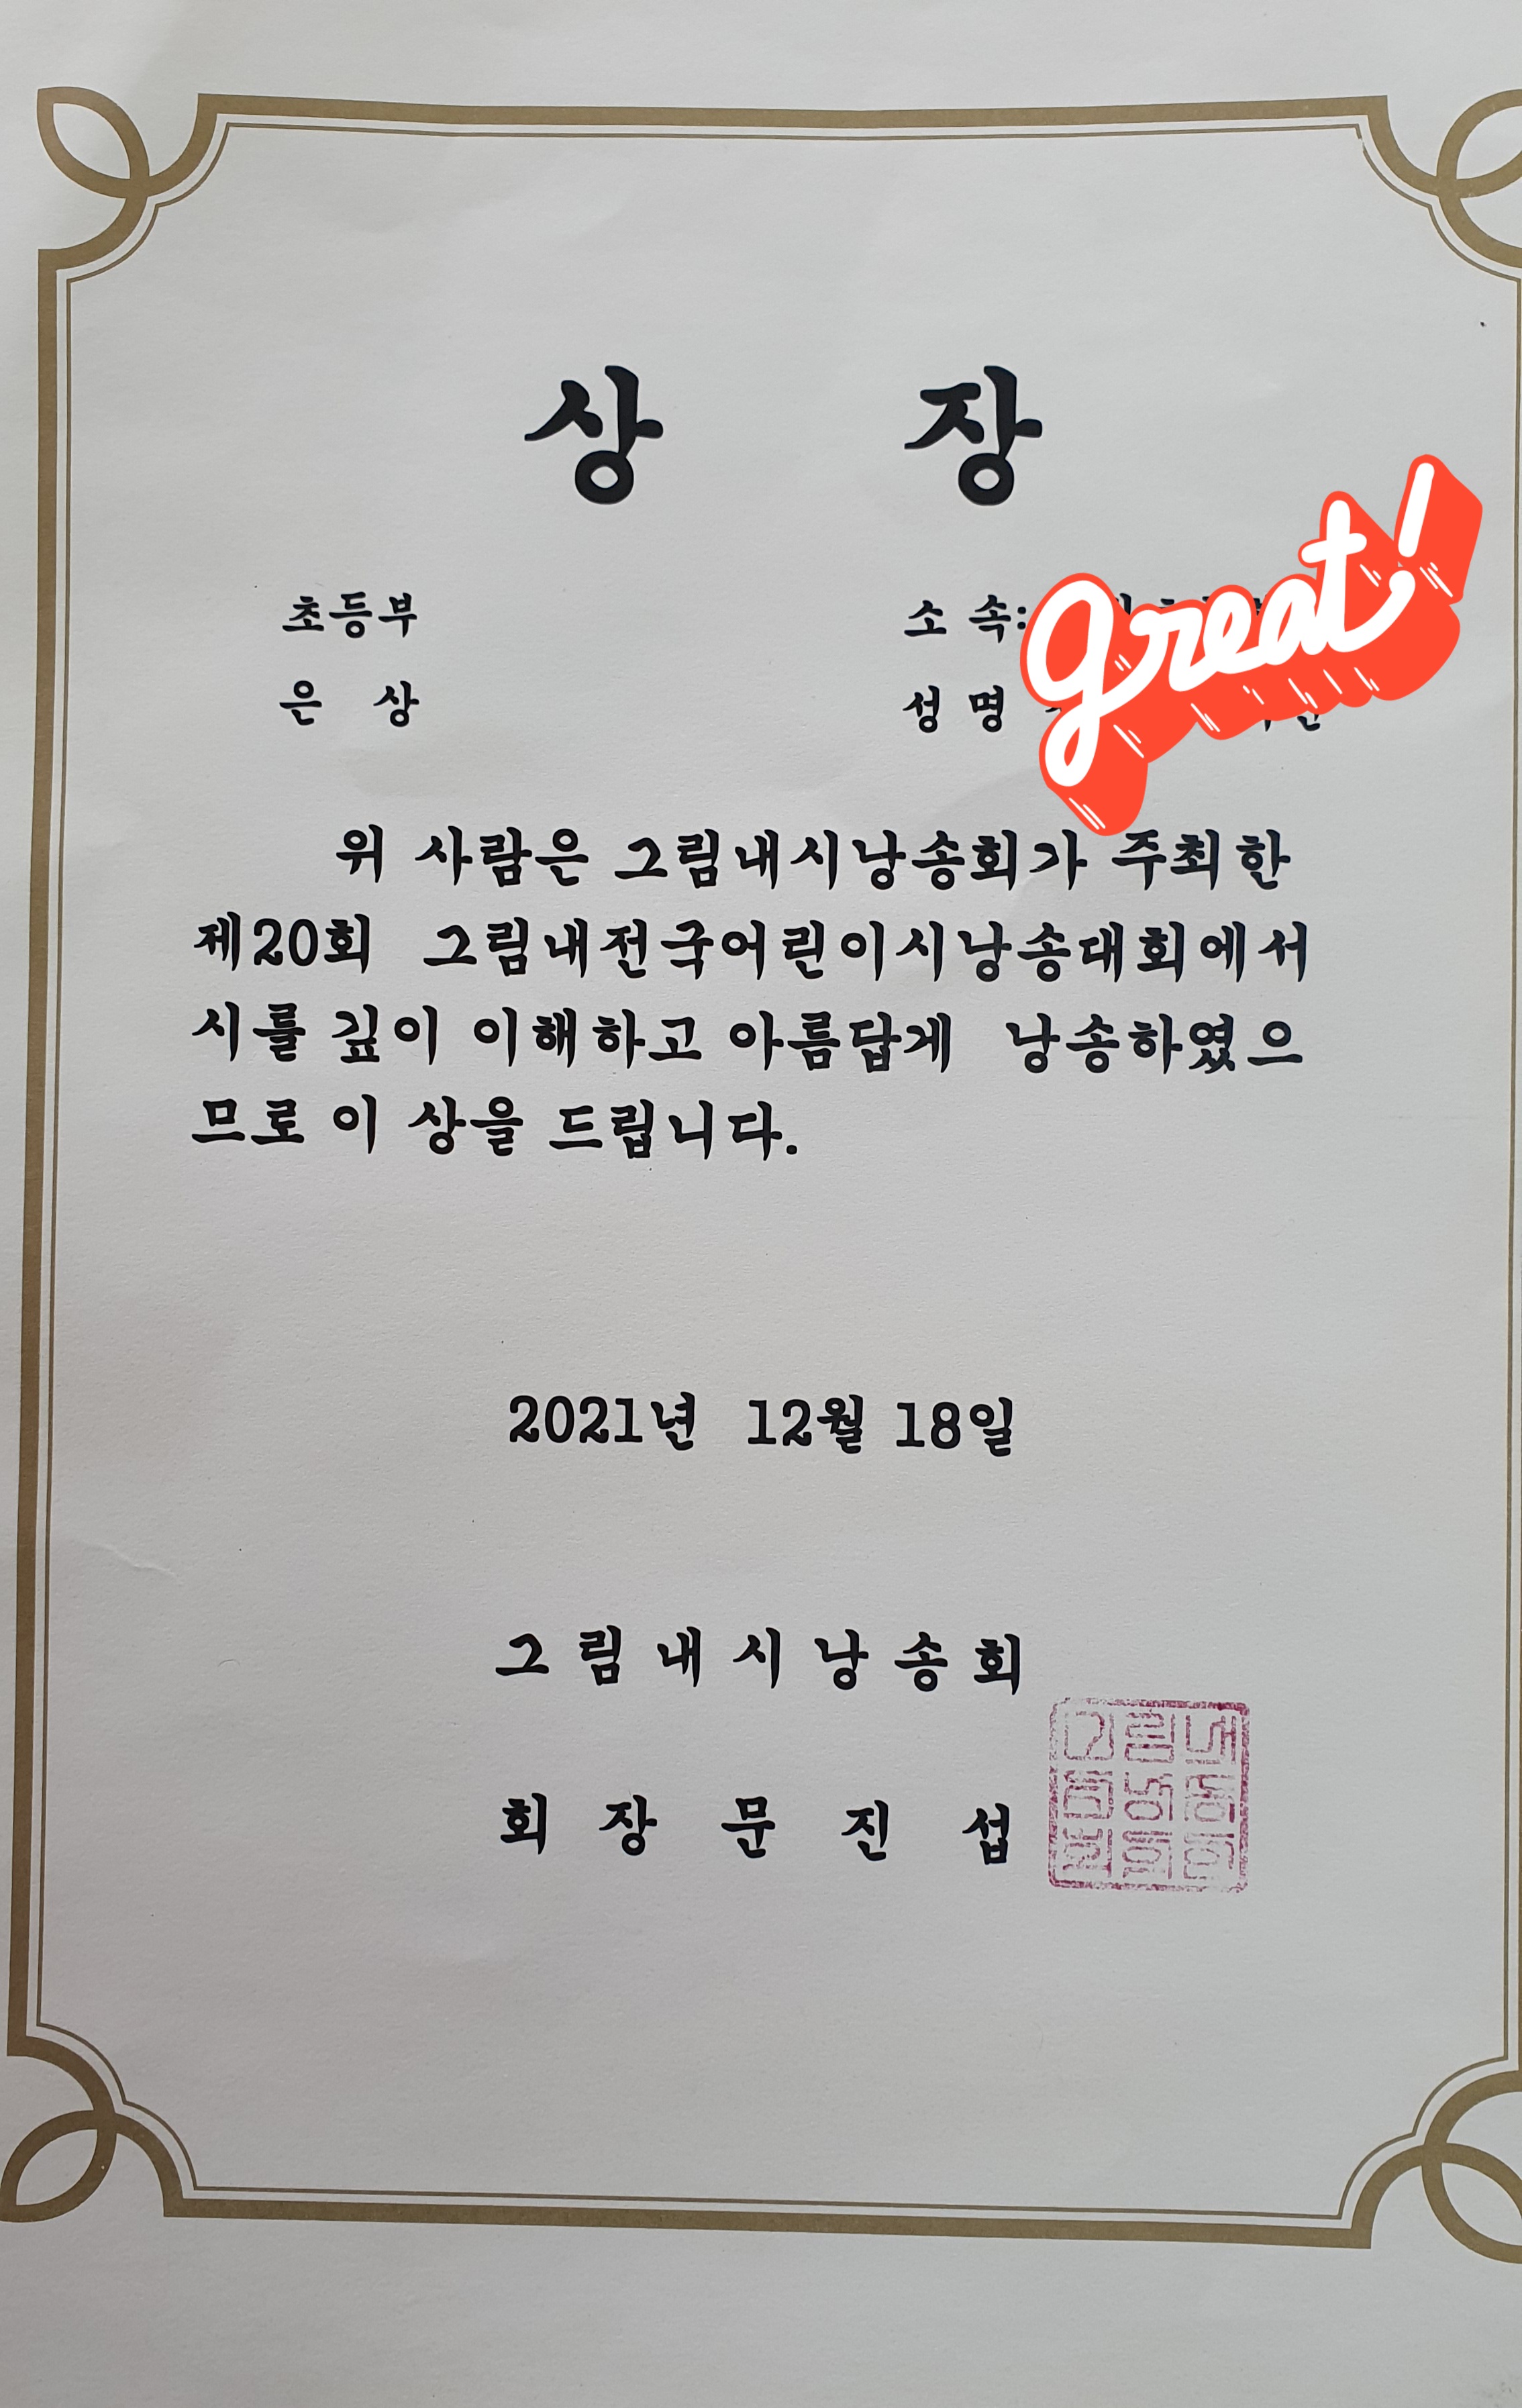 상 장
초등부
소 속:
great!
은 상
성 명
위 사람은 그림내시낭송회가 주최한
제20회 그림내전국어린이시낭송대회에서
시를 깊이 이해하고 아름답게 낭송하였으
므로 이 상을 드립니다.
2021년 12월 18일
그 림 내 시 낭 송 회
회 장 문 진 섭